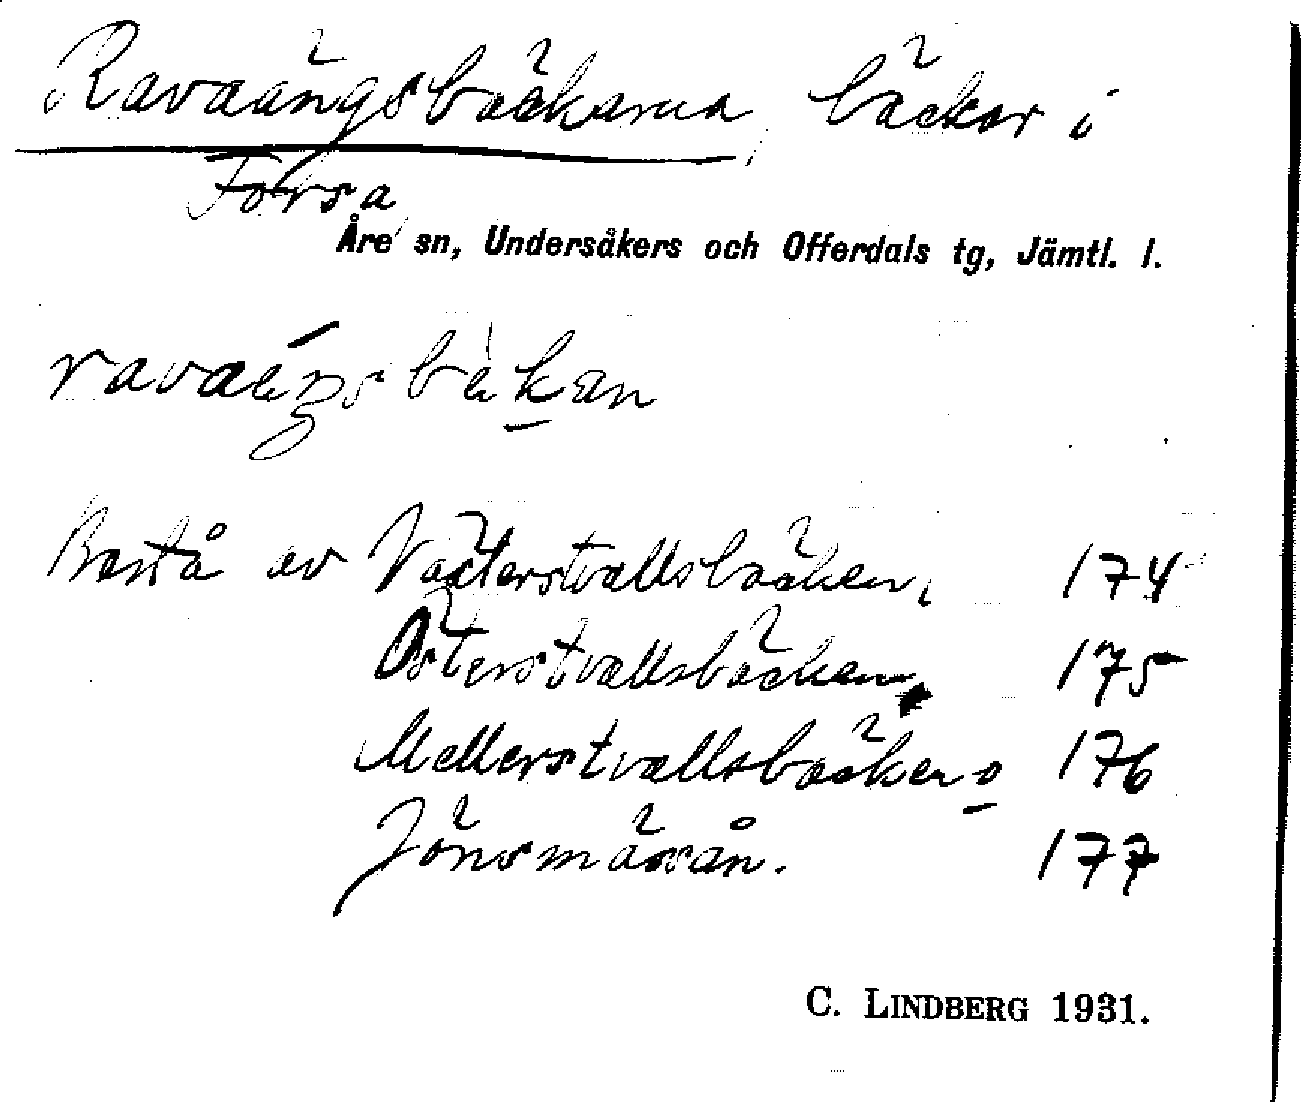 Ravaängsbäckarna, bäckar i
Forsa
Åre sn, Undersåkers och Offerdals tg, Jämtl. l.
ravaæŋsbækan
Bestå av Västerstvallsbäcken, 174
Österstvallsbäcken, 175
Mellerstvallsbäcken o 176
Jönsmässån. 177
C. LINDBERG 1931.